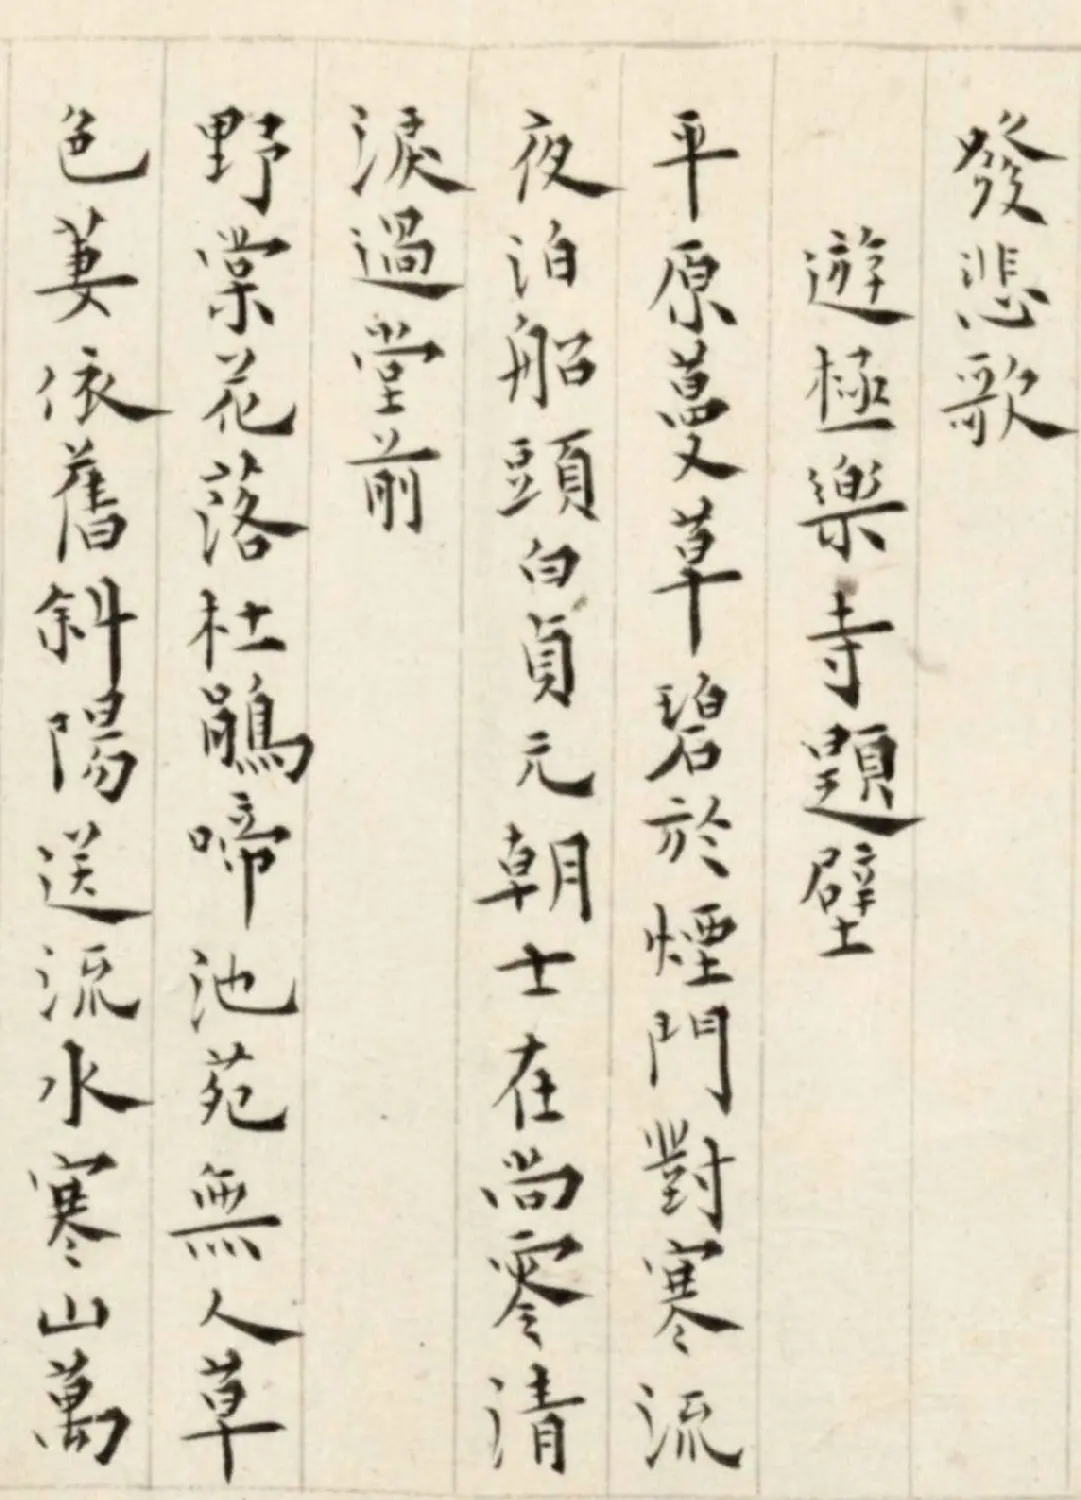 發悲歌
遊極樂寺題壁
平原蔓草碧於煙門對寒流
夜泊船頭白貞元朝士在尚零清
淚過堂前
野棠花落杜鵑啼池苑無人草
色萋依舊斜陽送流水寒山萬